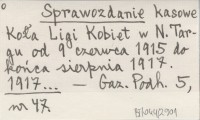 Sprawozdanie kasowe
Koła Ligi Kobiet w N. Tar-
gu od 9 czerwca 1915 do
końca sierpnia 1917.
1917... — Gaz. Podh. 5,
nr 47.